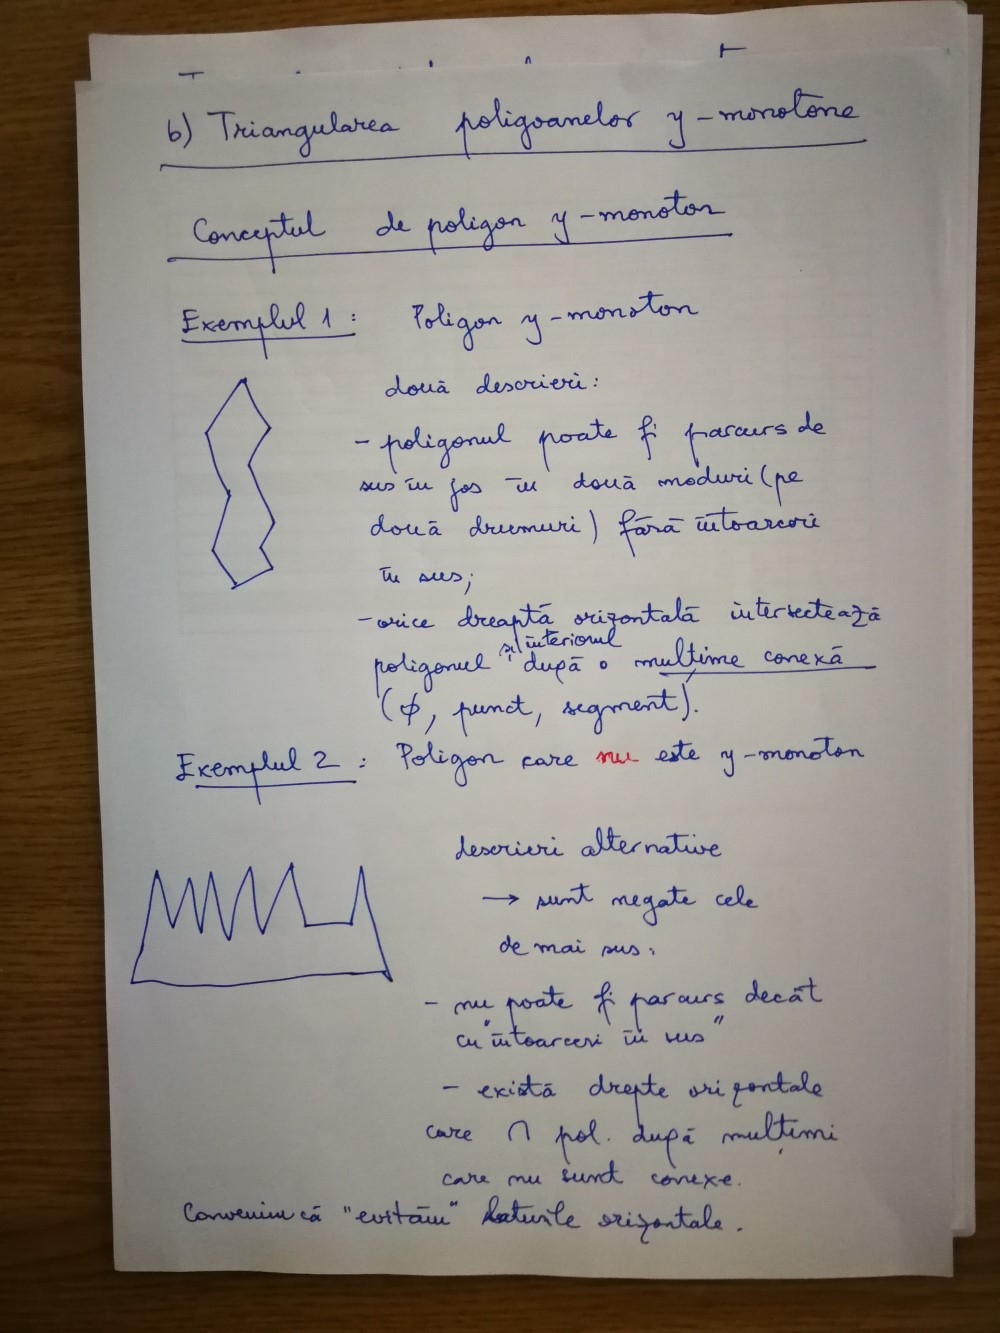 b) Triangularea poligoanelor y-monotone
Conceptul de poligon y-monoton
Exemplul 1: Poligon y-monoton
două descrieri:
- poligonul poate fi parcurs de
sus în jos în două moduri (pe
două drumuri) fără întoarceri
în sus;
- orice dreaptă orizontală intersectează
și interiorul
poligonul după o mulțime conexă
(∅, punct, segment).
Exemplul 2: Poligon care nu este y-monoton
descrieri alternative
→ sunt negate cele
de mai sus:
- nu poate fi parcurs decât
cu "întoarceri în sus"
- există drepte orizontale
care ∩ pol. după mulțimi
care nu sunt conexe.
Convenim că "evităm" laturile orizontale.